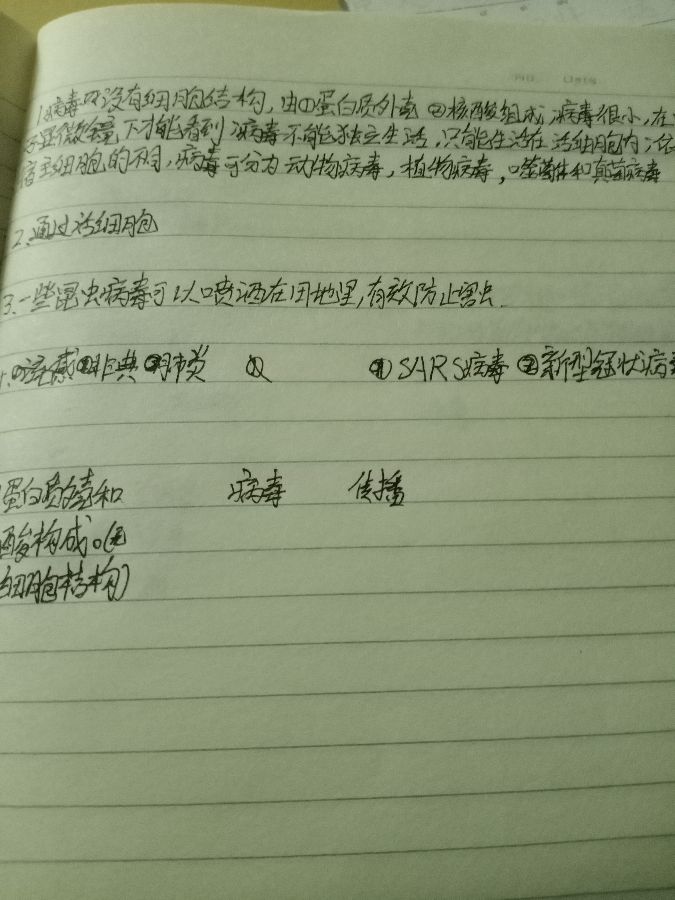 No Date
1.病毒没有细胞结构,由①蛋白质外壳 ②核酸组成,病毒很小,在
子显微镜下才能看到,病毒不能独立生活,只能生活在活细胞内,依
宿主细胞的不同,病毒可分为动物病毒,植物病毒,噬菌体和真菌病毒
2.通过活细胞
3.一些昆虫病毒可以喷洒在田地里,有效防止害虫.
①流感②非典③肺炎 ① ①SARS病毒 ②新型冠状病毒
蛋白质外壳和 病毒 传播
酸构成。(无
细胞结构)